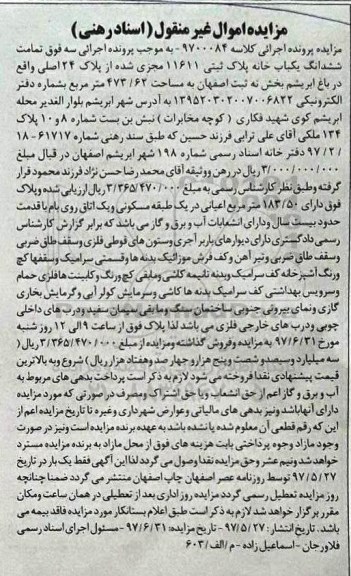 مزایده اموال غیر منقول (اسناد رهنی)
مزایده پرونده اجرائی کلاسه ۹۷۰۰۰۸۴- به موجب پرونده اجرائی سه فوق تمامت
ششدانگ یکباب خانه پلاک ثبتی ۱۱۶۱۱ مجزی شده از پلاک ۲۴ اصلی واقع
در باغ ابریشم بخش نه ثبت اصفهان به مساحت ۴۷۳/۶۲ متر مربع بشماره دفتر
الکترونیکی ۱۳۹۵۲۰۳۰۲۰۰۷۰۰۶۸۲۲ به آدرس شهر ابریشم بلوار الغدیر محله
ابریشم کوی شهید فکاری ( کوچه مخابرات ) نبش بن بست شماره ۸ و ۱۰ پلاک
۱۳۴ ملکی آقای علی ترابی فرزند حسین که طبق سند رهنی شماره ۶۱۷۱۷- ۱۸
/ ۲ / ۹۷ دفتر خانه اسناد رسمی شماره ۱۹۸ شهر ابریشم اصفهان در قبال مبلغ
۳/۰۰۰/۰۰۰/۰۰۰ ریال در رهن و وثیقه آقای محمد رضا حسن نژاد فرزند محمود قرار
گرفته و طبق نظر کارشناس رسمی به مبلغ ۳/۳۶۵/۴۷۰/۰۰۰ ریال ارزیابی شده و پلاک
فوق دارای ۱۸۳/۵۰ متر مربع اعیانی در یک طبقه مسکونی و یک اتاق روی بام با قدمت
حدود بیست سال و دارای انشعابات آب و برق و گاز می باشد که برابر گزارش کارشناس
رسمی دادگستری دارای دیوارهای باربر آجری و ستون های قوطی فلزی و سقف طاق ضربی
و سقف طاق ضربی و تیر آهن و کف فرش موزائیک بدنه ها و قسمتی سرامیک و سقفها گچ
ورنگ آشپزخانه کف سرامیک و بدنه تانیمه کاشی و مابقی گچ ورنگ و کابینت ها فلزی حمام
و سرویس بهداشتی کف سرامیک بدنه ها کاشی و سرمایش کولر آبی و گرمایش بخاری
گازی و نمای بیرونی جنوبی ساختمان سنگ و مابقی سیمان سفید و درب های داخلی
چوبی و درب های خارجی فلزی می باشد لذا پلاک فوق از ساعت ۹ الی ۱۲ روز شنبه
مورخ ۹۷/۶/۳۱ به مزایده و فروش گذاشته و مزایده از مبلغ ۳/۳۶۵/۴۷۰/۰۰۰ ریال (
سه میلیارد و سیصد و شصت و پنج هزار و چهارصد و هفتاد هزار ریال ) شروع و به بالاترین
قیمت پیشنهادی نقدا فروخته می شود لازم به ذکر است پرداخت بدهی های مربوط به
آب و برق و گاز اعم از حق انشعاب و یا حق اشتراک و مصرف در صورتی که مورد مزایده
دارای آنها باشد و نیز بدهی های مالیاتی و عوارض شهرداری و غیره تا تاریخ مزایده اعم از
این که رقم قطعی آن معلوم شده یا نشده باشد به عهده برنده مزایده است و نیز در صورت
وجود مازاد وجوه پرداختی بابت هزینه های فوق از محل مازاد به برنده مزایده مسترد
خواهد شد و نیم عشر و حق مزایده نقدا وصول می گردد لذا این آگهی فقط یک بار در تاریخ
۹۷/۵/۲۷ توسط روزنامه عصر اصفهان چاپ اصفهان منتشر می گردد ضمنا چنانچه
روز مزایده تعطیل رسمی گردد مزایده روز اداری بعد از تعطیلی در همان ساعت و مکان
مقرر برگزار خواهد شد لازم به ذکر است طبق اعلام بستانکار مورد مزایده فاقد بیمه می
باشد . تاریخ انتشار: ۹۷/۵/۲۷ - تاریخ مزایده: ۹۷/۶/۳۱ - مسئول اجرای اسناد رسمی
فلاورجان - اسماعیل زاده - م/الف/۶۰۳